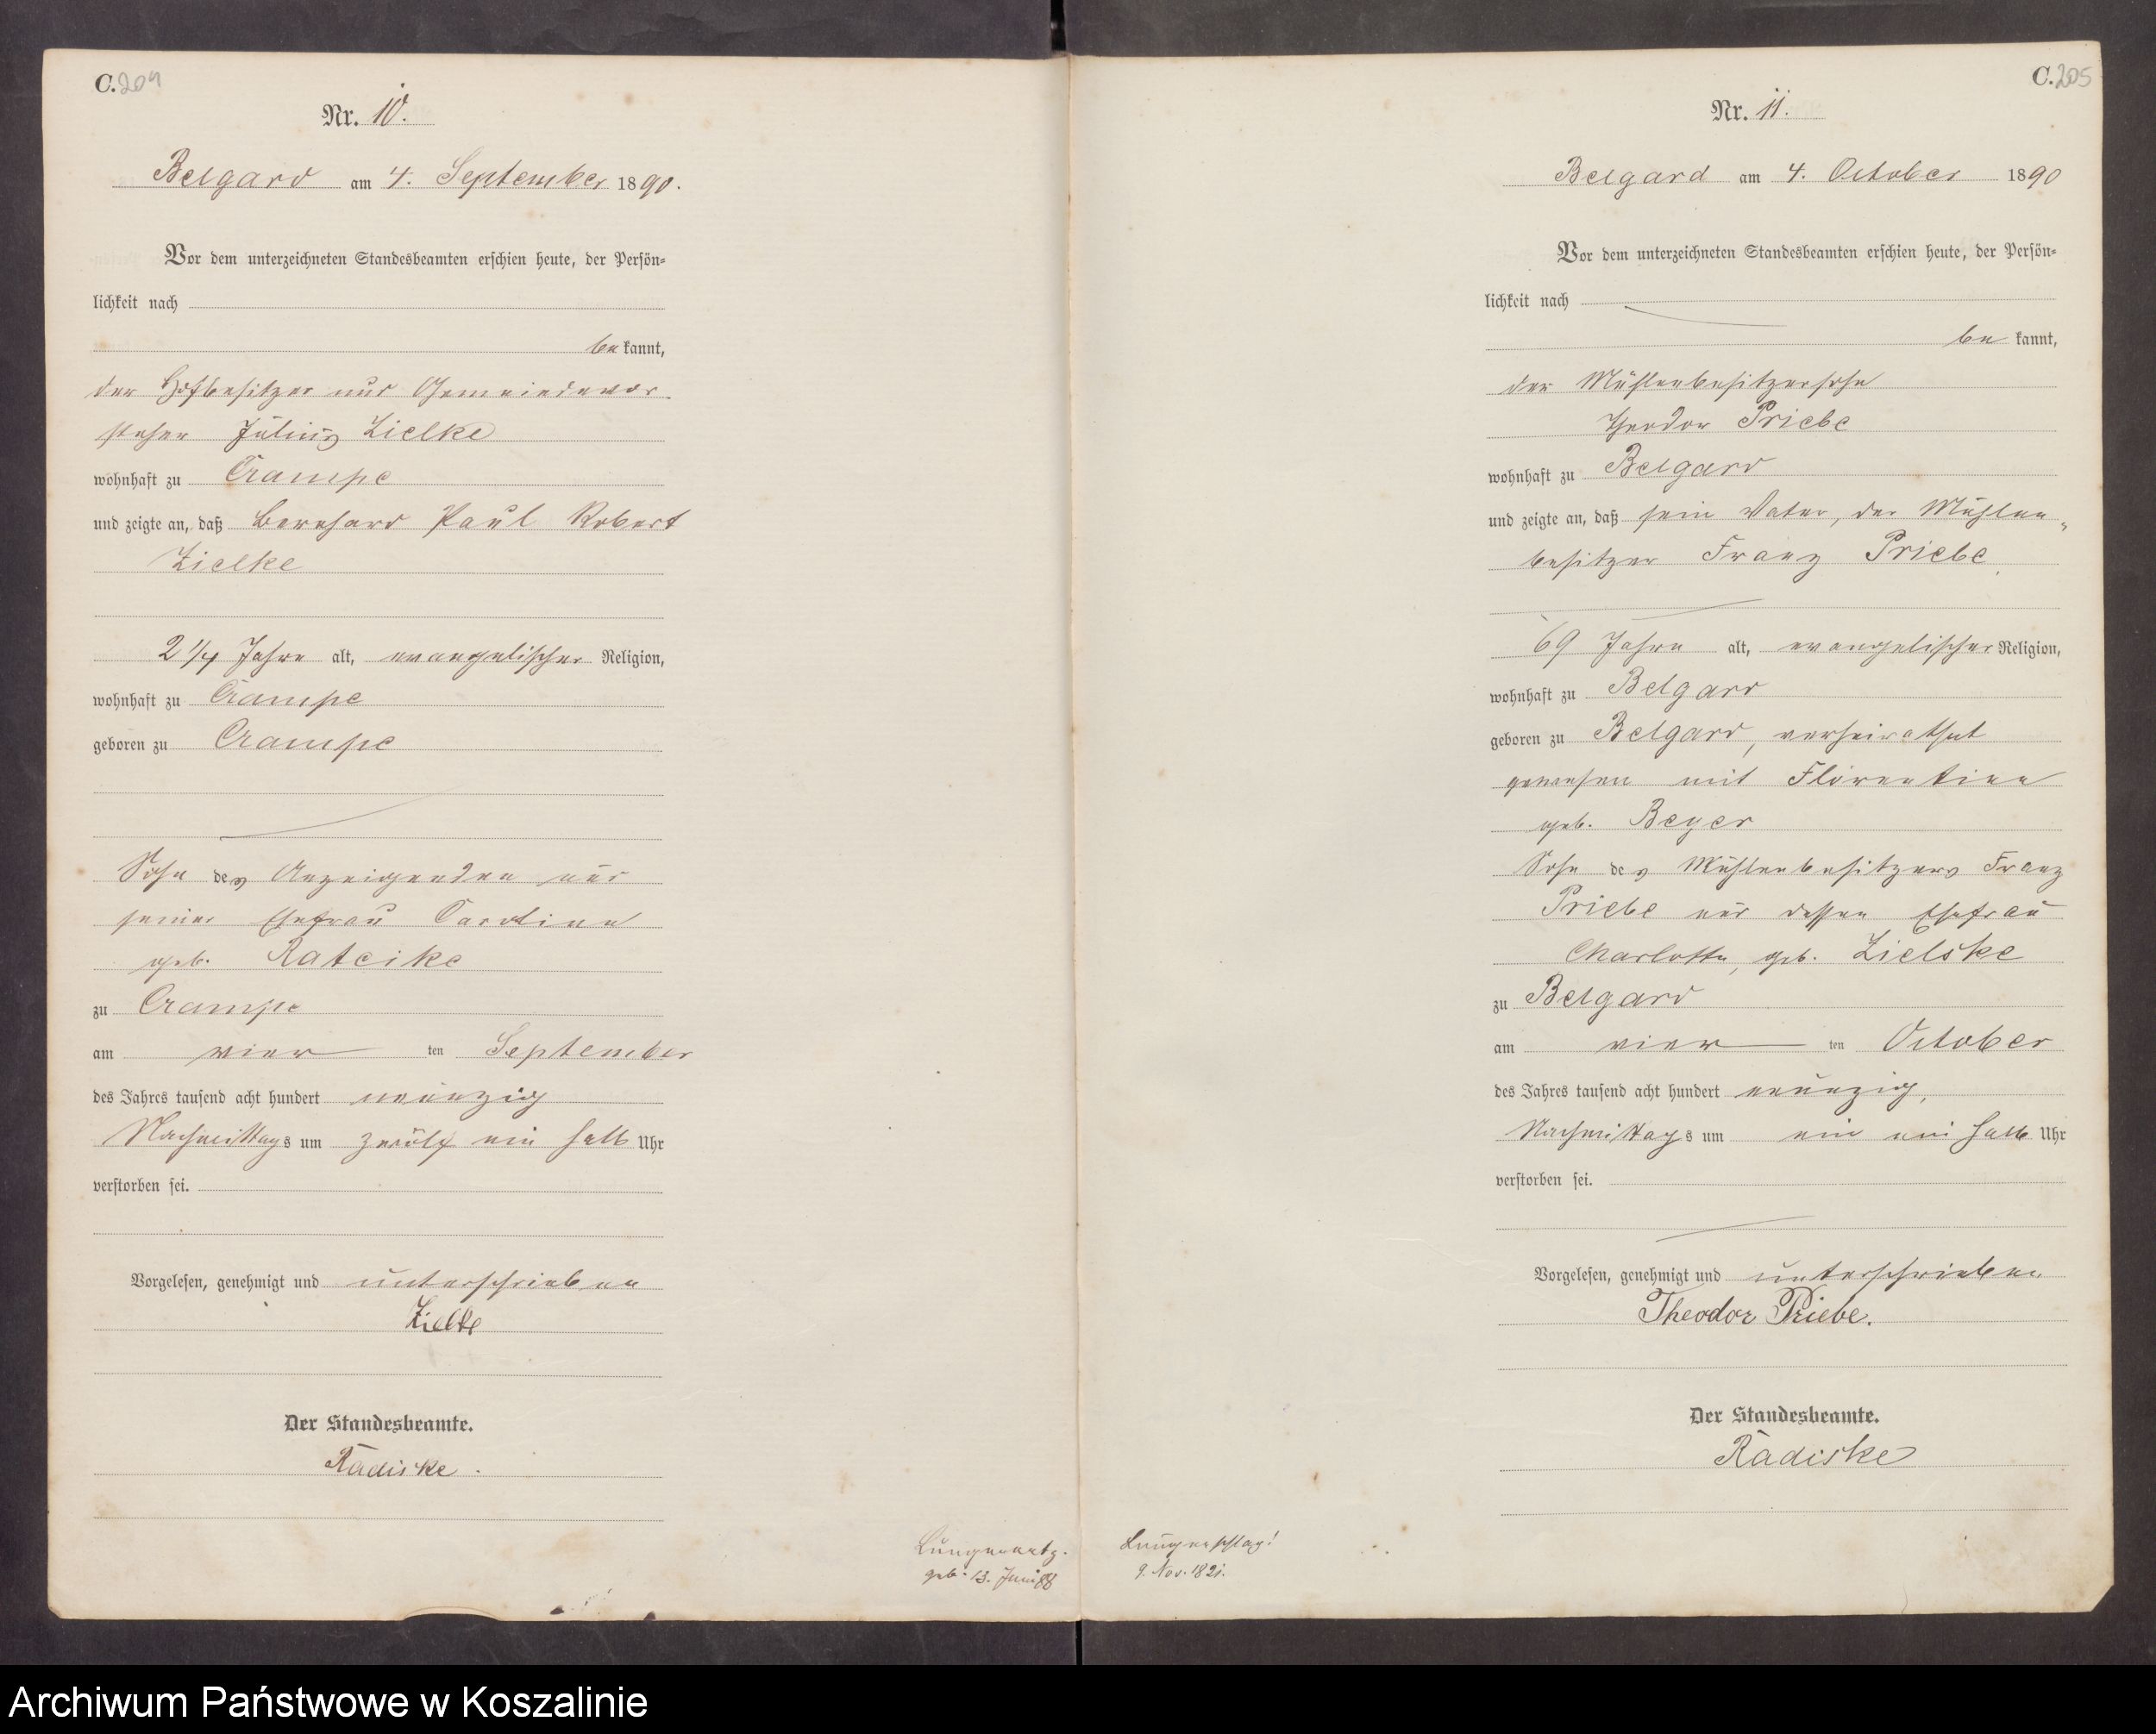 C. 204
Nr. 10.
Belgard am 4. September 1890.
Vor dem unterzeichneten Standesbeamten erschien heute, der Persön-
lichkeit nach
be kannt,
der Hofbesitzer und Gemeindevor-
steher Julius Zielke
wohnhaft zu Crampe
und zeigte an, daß Bernhard Paul Robert
Zielke
2 1/4 Jahre alt, evangelischer Religion,
wohnhaft zu Crampe
geboren zu Crampe
Sohn des Anzeigenden und
seiner Ehefrau Caroline
geb. Rateike
zu Crampe
am vier ten September
des Jahres tausend acht hundert neunzig
Nachmittags um zwölf ein halb Uhr
verstorben sei.
Vorgelesen, genehmigt und unterschrieben
Zielke
Der Standesbeamte.
Radiske.
geb. 13. Juni 88
C. 205
Nr. 11.
Belgard am 4. October 1890
Vor dem unterzeichneten Standesbeamten erschien heute, der Persön-
lichkeit nach
be kannt,
der Mühlenbesitzersohn
Theodor Priebe
wohnhaft zu Belgard
und zeigte an, daß sein Vater, der Mühlen-
besitzer Franz Priebe
69 Jahre alt, evangelischer Religion,
wohnhaft zu Belgard
geboren zu Belgard, verheirathet
gewesen mit Florentine
geb. Beyer
Sohn des Mühlenbesitzers Franz
Priebe und dessen Ehefrau
Charlotte, geb. Zielske
zu Belgard
am vier ten October
des Jahres tausend acht hundert neunzig,
Nachmittags um ein ein halb Uhr
verstorben sei.
Vorgelesen, genehmigt und unterschrieben
Theodor Priebe.
Der Standesbeamte.
Radiske
Lungenschlag!
9. Nov. 1821.
Archiwum Państwowe w Koszalinie